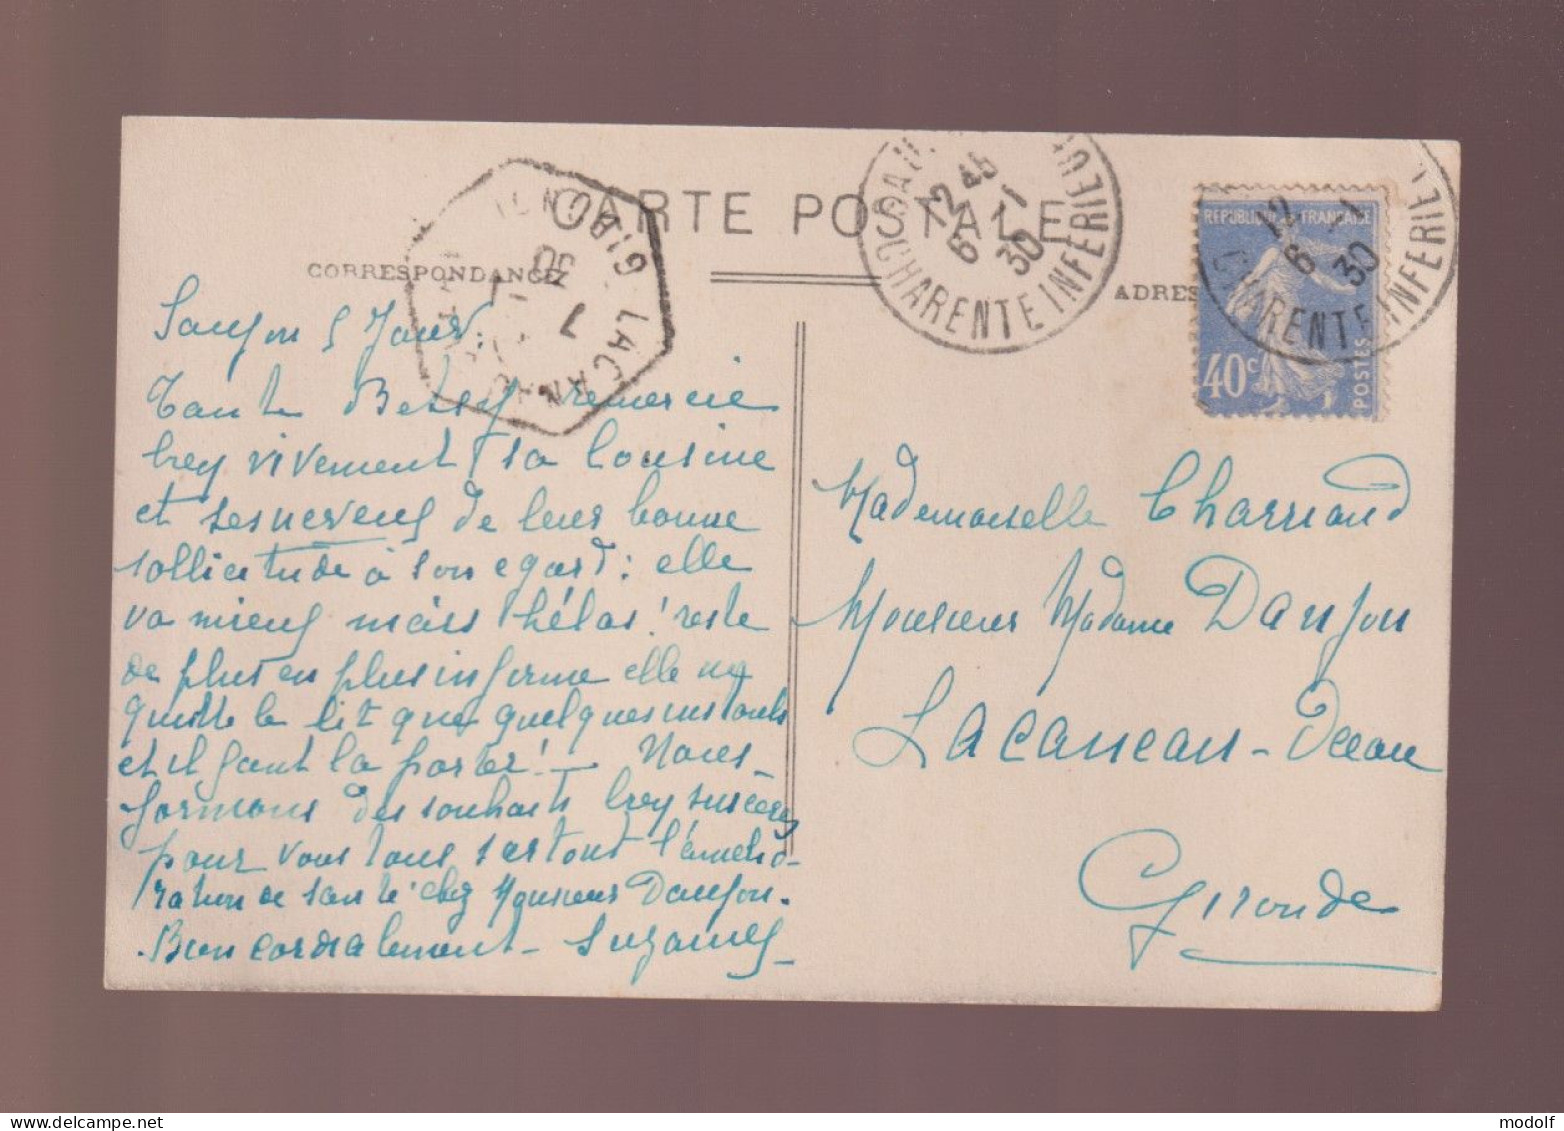 CARTE POSTALE
CORRESPONDANCE
ADRES
12 45
6 - 1
30
CHARENTE INFERIEURE
12
6 - 1
30
CHARENTE INFERIE
REPUBLIQUE FRANCAISE
40c
POSTES
LACANAU
7 - 1
30
Saujon 5 Janv.
Tante Betsy remercie
brey vivement sa Cousine
et ses neveus de leur bonne
sollicitude à son egard : elle
va mieux mais hélas ! reste
de plus en plus infirme elle ne
quitte le lit que quelques instants
et il faut la porter ! — Nous
formons des souhaits brey sincères
pour vous tous surtout l'amélio-
ration de santé chez Monsieur Daujon.
Bien cordialement - Suzanne
Mademoiselle Charriaud
Monsieur Madame Daujon
Lacaneau - Ocean
Gironde
modolf
www.delcampe.net